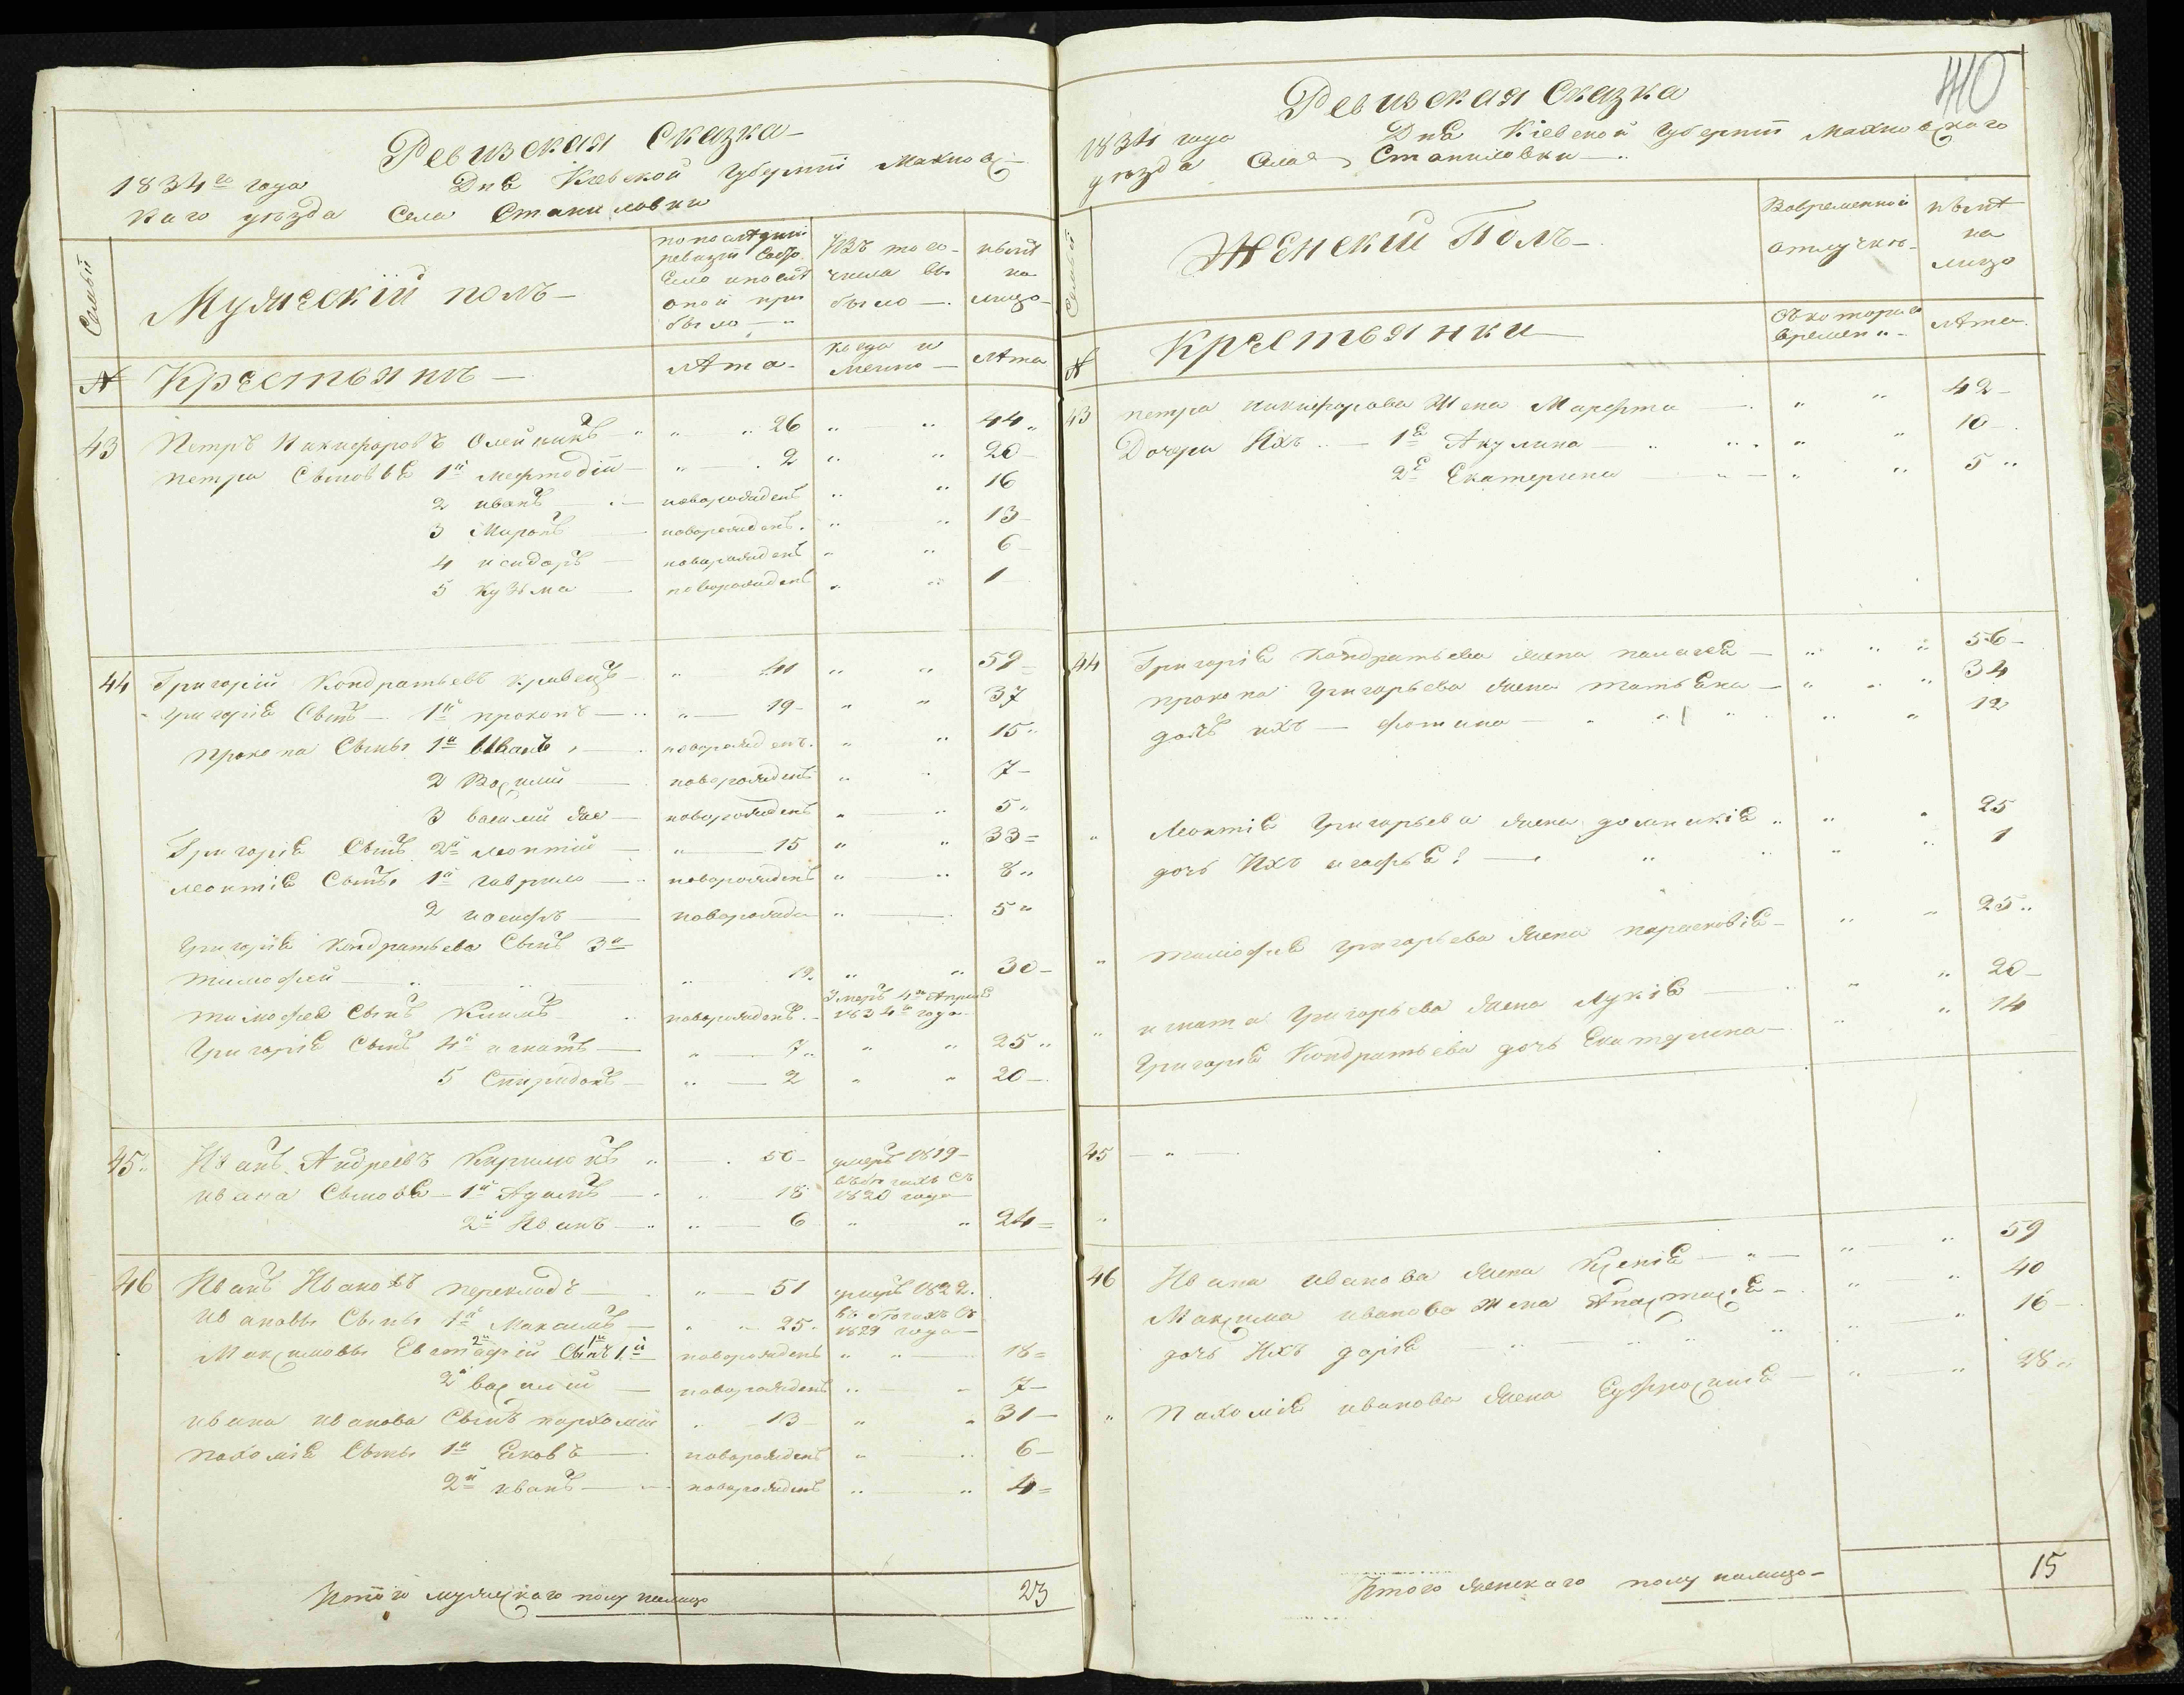 Ревизская Сказка
1834го года Дня Киевской Губернии Махновс
каго уезда Села Станиловки
Семьи
Мужескій полъ
по последней
ревизіи состо
яло и после
оной при
было
Изъ того
числа вы
было
ныне
на
лицо
№
Крестьянъ
Лета
когда и
именно
Лета
43 Петръ Никифоровъ Олейникъ 26 44
Петра Сыновья 1й Мефтодій 2 20
2 иванъ новорожденъ 16
3 Миронъ новорожденъ 13
4 исидоръ новорожденъ 6
5 Кузьма новорожденъ 1
44 Григорій Кондратьевъ Кравецъ 41 59
Григорія Сынъ 1й прокопъ 19 37
Прокопа Сыны 1й Иванъ новорожденъ 15
2 Василий новорожденъ 7
3 василий же новорожденъ 5
Григорія Сынъ 2й леонтій 15 33
леонтія Сыны 1й гаврило новорожденъ 8
2 иосифъ новорожде 5
Григорія Кондратьева Сынъ 3й
тимофей 12 30
тимофея Сынъ Климъ новорожденъ Умеръ 4го Апреля
1834го года
Григорія Сынъ 4й игнатъ 7 25
5 Спиридонъ 2 20
45 Иванъ Андреевъ Кирилюкъ 50 умеръ 1819
ивана Сыновья 1й Адамъ 18 въ бегахъ Съ
1820 года
2й Иванъ 6 24
46 Иванъ Ивановъ перекладъ 51 умеръ 1822
Ивановы Сыны 1й Максимъ 25 въ бегахъ Съ
1829 года
Максимовы Евстафій Сынъ 1й новорожденъ 18
2й василий новорожденъ 7
ивана иванова Сынъ пархомій 13 31
пахомія Сыны 1й Яковъ новорожденъ 6
2й иванъ новорожденъ 4
Итого мужескаго полу налицо 23
410
Ревизская Сказка
1834 года Дня Кіевской Губерніи Махновскаго
уезда Села Станиловки
Семьи
Женскій Полъ
Вовременной
отлучке
ныне
на
лицо
№
Крестьянки
Съ котораго
времени
Лета
43 петра никифорова Жена Марфта 42
Дочери Ихъ 1я Акулина 10
2я Екатерина 5
44 Григорія Кондратьева жена палагея 56
прокопа Григорьева жена татьяна 34
дочь ихъ фотина 12
Леонтія Григорьева жена домникія 25
дочь Ихъ агафья 1
тимофея Григорьева жена парасковія 25
игната Григорьева жена Лукія 20
Григорія Кондратьева дочь Екатерина 14
45
46 Ивана иванова жена Ксенія 59
Максима иванова Жена Анастасія 40
дочь Ихъ дарія 16
Пахомія иванова жена Ефросинія 28
Итого женскаго полу налицо 15